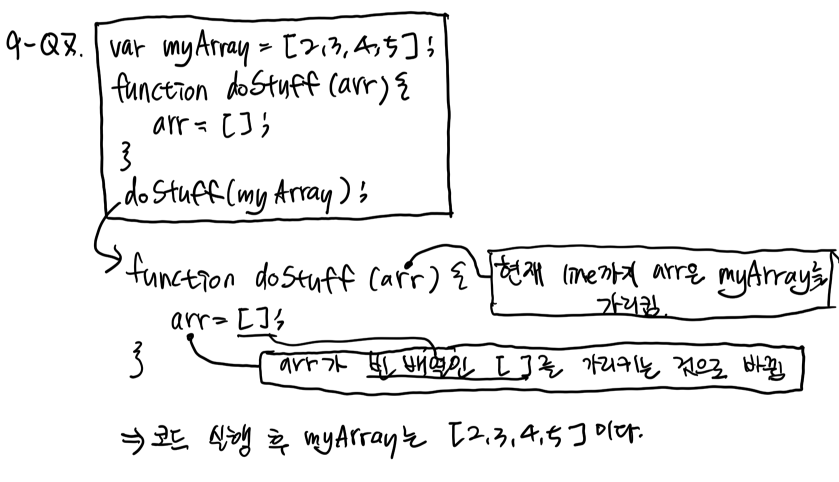 9-Q7.
var myArray = [2,3,4,5];
function doStuff(arr){
arr = [];
}
doStuff(myArray);
function doStuff (arr) {
현재 line까지 arr은 myArray를
가리킴.
arr = [];
}
arr가 빈 배열인 [ ]를 가리키는 것으로 바뀜
⇒ 코드 실행 후 myArray는 [2,3,4,5]이다.